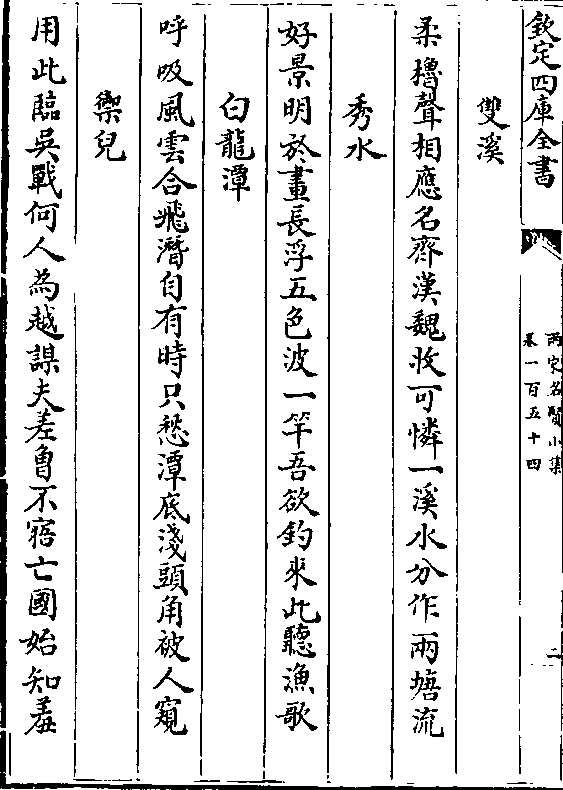 欽定四庫全書
兩宋名賢小集
卷一百五十四
二
雙溪
柔櫓聲相應名齊漢魏收可憐一溪水分作兩塘流
秀水
好景明於畫長浮五色波一竿吾欲釣來此聽漁歌
白龍潭
呼吸風雲合飛潛自有時只愁潭底淺頭角被人窺
禦兒
用此臨吳戰何人為越謀夫差曾不寤亡國始知羞